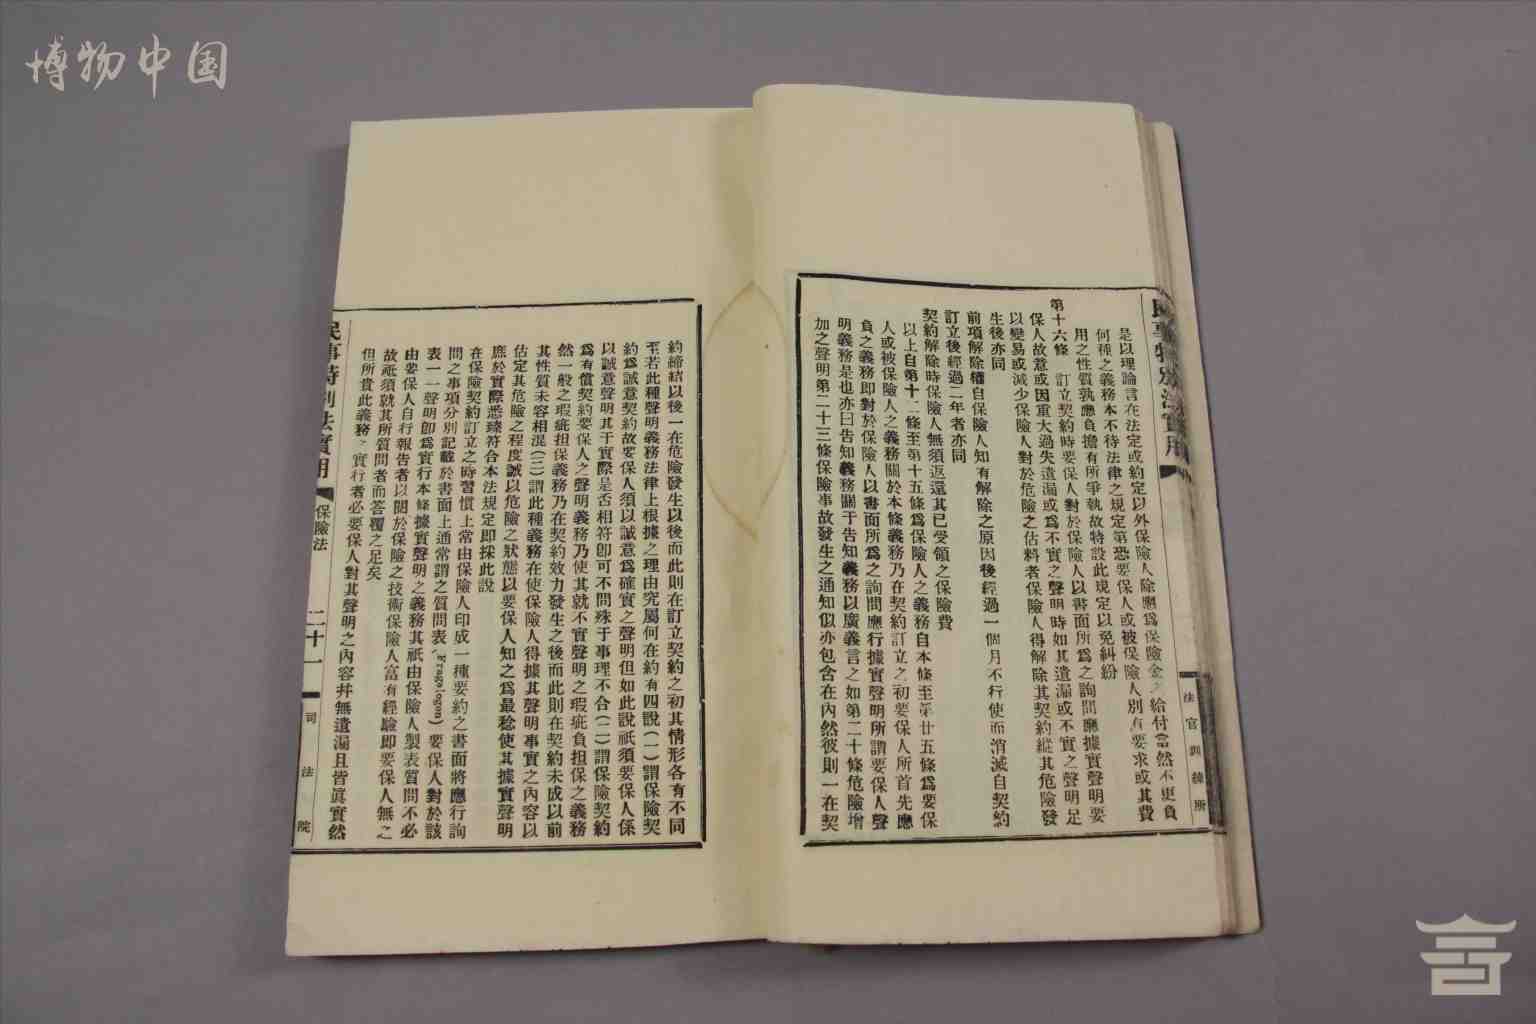 博物中国
是以理論言在法定或約定以外保險人除應爲保險金之給付當然不更負
何種之義務本不待法律之規定第恐要保人或被保險人別有要求或其費
用之性質孰應負擔有所爭執故特設此規定以免糾紛
第十六條 訂立契約時要保人對於保險人以書面所爲之詢問應據實聲明要
保人故意或因重大過失遺漏或爲不實之聲明時如其遺漏或不實之聲明足
以變易或減少保險人對於危險之估料者保險人得解除其契約縱其危險發
生後亦同
前項解除權自保險人知有解除之原因後經過一個月不行使而消滅自契約
訂立後經過二年者亦同
契約解除時保險人無須返還其已受領之保險費
以上自第十二條至第十五條爲保險人之義務自本條至第廿五條爲要保
人或被保險人之義務關於本條義務乃在契約訂立之初要保人所首先應
負之義務即對於保險人以書面所爲之詢問應行據實聲明所謂要保人聲
明義務是也亦曰告知義務關于告知義務以廣義言之如第二十條危險增
加之聲明第二十三條保險事故發生之通知似亦包含在內然彼則一在契
法官訓練所
約締結以後一在危險發生以後而此則在訂立契約之初其情形各有不同
至若此種聲明義務法律上根據之理由究屬何在約有四說(一)謂保險契
約爲誠意契約故要保人須以誠意爲確實之聲明但如此說祇須要保人係
以誠意聲明其于實際是否相符卽可不問殊于事理不合(二)謂保險契約
爲有償契約要保人之聲明義務乃使其就不實聲明之瑕疵負担保之義務
然一般之瑕疵担保義務乃在契約效力發生之後而此則在契約未成以前
其性質未容相混(三)謂此種義務在使保險人得據其聲明事實之內容以
估定其危險之程度誠以危險之狀態以要保人知之爲最稔使其據實聲明
庶於實際悉臻符合本法規定即採此說
在保險契約訂立之時習慣上常由保險人印成一種要約之書面將應行詢
問之事項分別記載於書面上通常謂之質問表(Fragelogon)要保人對於該
表一一聲明卽爲實行本條據實聲明之義務其祇由保險人製表質問不必
由要保人自行報告者以關於保險之技術保險人富有經驗即要保人無之
故祇須就其所質問者而答覆之足矣
但所貴此義務之實行者必要保人對其聲明之內容幷無遺漏且皆眞實然
民事特別法實用 保險法 二十一 司法院